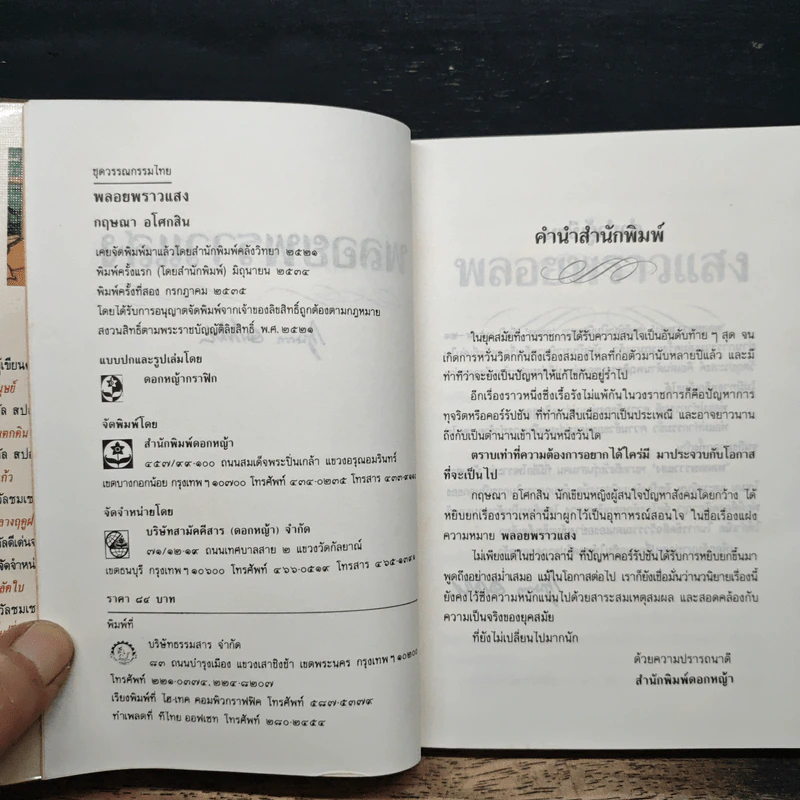 ชุดวรรณกรรมไทย
พลอยพราวแสง
กฤษณา อโศกสิน
เคยจัดพิมพ์มาแล้วโดยสำนักพิมพ์คลังวิทยา ๒๕๒๑
พิมพ์ครั้งแรก (โดยสำนักพิมพ์) มิถุนายน ๒๕๓๔
พิมพ์ครั้งที่สอง กรกฎาคม ๒๕๓๕
โดยได้รับการอนุญาตจัดพิมพ์จากเจ้าของลิขสิทธิ์ถูกต้องตามกฎหมาย
สงวนสิทธิ์ตามพระราชบัญญัติลิขสิทธิ์ พ.ศ. ๒๕๒๑
แบบปกและรูปเล่มโดย
ดอกหญ้ากราฟิก
จัดพิมพ์โดย
สำนักพิมพ์ดอกหญ้า
๔๕๗/๙๙-๑๐๐ ถนนสมเด็จพระปิ่นเกล้า แขวงอรุณอมรินทร์
เขตบางกอกน้อย กรุงเทพฯ ๑๐๗๐๐ โทรศัพท์ ๔๓๔-๐๒๓๕ โทรสาร
จัดจำหน่ายโดย
บริษัทสามัคคีสาร (ดอกหญ้า) จำกัด
๗๑/๑๒-๑๗ ถนนเทศบาลสาย ๒ แขวงวัดกัลยาณ์
เขตธนบุรี กรุงเทพฯ ๑๐๖๐๐ โทรศัพท์ ๔๖๖-๐๕๑๙ โทรสาร
ราคา ๘๔ บาท
พิมพ์ที่
บริษัทธรรมสาร จำกัด
๘๓ ถนนบำรุงเมือง แขวงเสาชิงช้า เขตพระนคร กรุงเทพฯ ๑๐๒๐๐
โทรศัพท์ ๒๒๑-๐๓๗๔, ๒๒๔-๘๒๐๗
เรียงพิมพ์ที่ ไฮ-เทค คอมพิวกราฟฟิค โทรศัพท์ ๕๘๗-๕๓๗๙
ทำเพลตที่ ทีไทย ออฟเซท โทรศัพท์ ๒๘๐-๒๔๕๔
คำนำสำนักพิมพ์
ในยุคสมัยที่งานราชการได้รับความสนใจเป็นอันดับท้าย ๆ สุด จน
เกิดการหวั่นวิตกกันถึงเรื่องสมองไหลที่ก่อตัวมานับหลายปีแล้ว และมี
ท่าทีว่าจะยังเป็นปัญหาให้แก้ไขกันอยู่ร่ำไป
อีกเรื่องราวหนึ่งซึ่งเรื้อรังไม่แพ้กันในวงราชการก็คือปัญหาการ
ทุจริตหรือคอร์รัปชัน ที่ทำกันสืบเนื่องมาเป็นประเพณี และอาจยาวนาน
ถึงกับเป็นตำนานเข้าในวันหนึ่งวันใด
ตราบเท่าที่ความต้องการอยากได้ใคร่มี มาประจวบกับโอกาส
ที่จะเป็นไป
กฤษณา อโศกสิน นักเขียนหญิงผู้สนใจปัญหาสังคมโดยกว้าง ได้
หยิบยกเรื่องราวเหล่านี้มาผูกไว้เป็นอุทาหรณ์สอนใจ ในชื่อเรื่องแฝง
ความหมาย พลอยพราวแสง
ไม่เพียงแต่ในช่วงเวลานี้ ที่ปัญหาคอร์รัปชันได้รับการหยิบยกขึ้นมา
พูดถึงอย่างสม่ำเสมอ แม้ในโอกาสต่อไป เราก็ยังเชื่อมั่นว่านวนิยายเรื่องนี้
ยังคงไว้ซึ่งความหนักแน่นไปด้วยสาระสมเหตุสมผล และสอดคล้องกับ
ความเป็นจริงของยุคสมัย
ที่ยังไม่เปลี่ยนไปมากนัก
ด้วยความปรารถนาดี
สำนักพิมพ์ดอกหญ้า